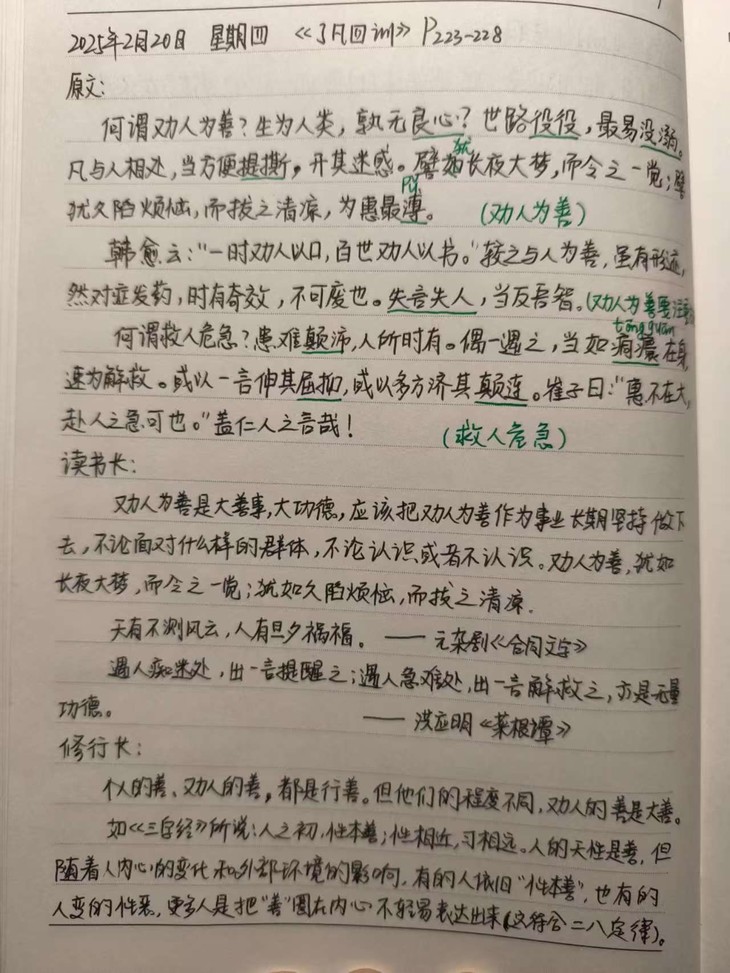 2025年2月20日 星期四 《了凡四训》P223-228
原文:
何谓劝人为善?生为人类,孰无良心?世路役役,最易没溺。
凡与人相处,当方便提撕,开其迷惑。譬如长夜大梦,而令之一觉;譬
犹
犹久陷烦恼,而拔之清凉,为惠最溥。(劝人为善)
pǔ
韩愈云:“一时劝人以口,百世劝人以书。”较之与人为善,虽有形迹,
然对症发药,时有奇效,不可废也。失言失人,当反吾智。(劝人为善要注意
tōng guān
何谓救人危急?患难颠沛,人所时有。偶一遇之,当如痌瘝在身,
速为解救。或以一言伸其屈抑,或以多方济其颠连。崔子曰:“惠不在大,
赴人之急可也。”盖仁人之言哉!(救人危急)
读书长:
劝人为善是大善事,大功德,应该把劝人为善作为事业长期坚持做下
去,不论面对什么样的群体,不论认识或者不认识。劝人为善,犹如
长夜大梦,而令之一觉;犹如久陷烦恼,而拔之清凉.
天有不测风云,人有旦夕祸福。——元杂剧《合同文字》
遇人痴迷处,出一言提醒之;遇人急难处,出一言解救之,亦是无量
功德。——洪应明《菜根谭》
修行长:
个人的善、劝人的善,都是行善。但他们的程度不同,劝人的善是大善。
如《三字经》所说:人之初,性本善;性相近,习相远。人的天性是善,但
随着人内心的变化和外部环境的影响,有的人依旧“性本善”,也有的
人变的性恶,更多人是把“善”圈在内心不轻易表达出来(这符合二八定律)。